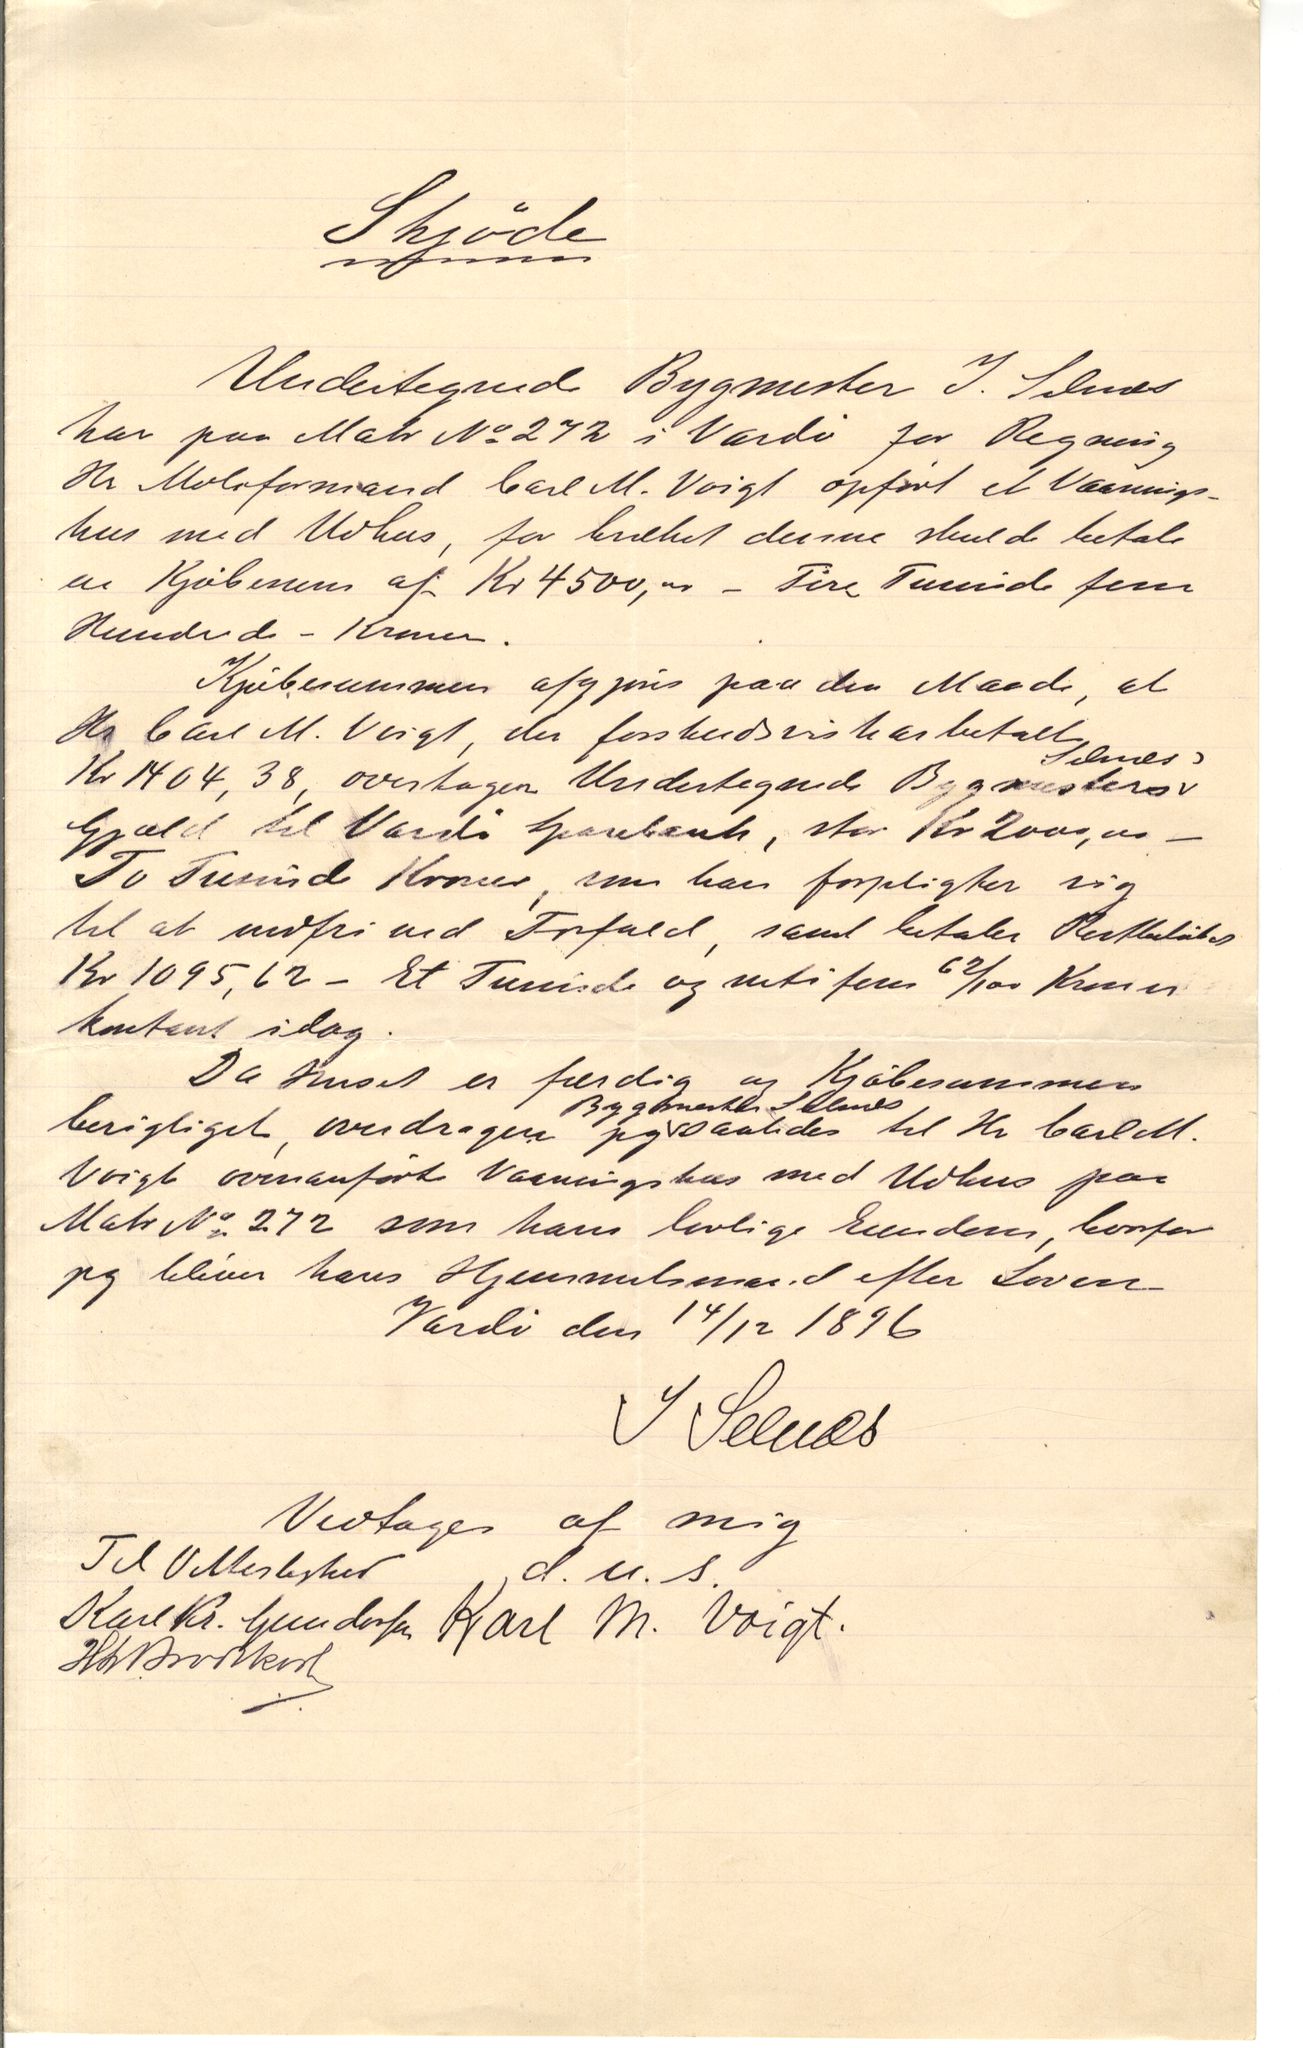 Skjöde
Undertegnede Bygmester J. Selnæs
har paa Matr No 272 i Vardö for Regning
Hr Moloformand Carl M. Voigt opfört et Vaanings-
hus med Udhus, for hvilket denne skulde betale
en Kjöbesum af Kr 4500,00 – Fire Tusinde fem
Hundrede – Kroner.
Kjöbesummen afgjøres paa den Maade, at
Hr Carl M. Voigt, der forskudsvis har betalt
Kr 1404,38, overtager Undertegnede Bygmester Selnæs's
Gjæld til Vardö Sparebank, stor Kr 2000,00 –
To Tusinde Kroner, som han forpligter sig
til at indfri ved Forfald, samt betaler Restbelöbet
Kr 1095,62 – Et Tusinde og nitifem 62/100 Kroner
kontant idag.
Da Huset er færdig og Kjöbesummen
berigtiget, overdrager jeg Bygmester Selnæs saaledes til Hr Carl M.
Voigt ovenanförte Vaaningshus med Udhus paa
Matr No 272 som hans lovlige Eiendom, hvorfor
jeg bliver hans Hjemmelsmand efter Loven
Vardö den 14/12 1896
J Selnæs
Vedtages af mig
Til Vitterlighed d. u. s.
Karl Kr. Gundersen Karl M. Voigt.
Brodtkorb